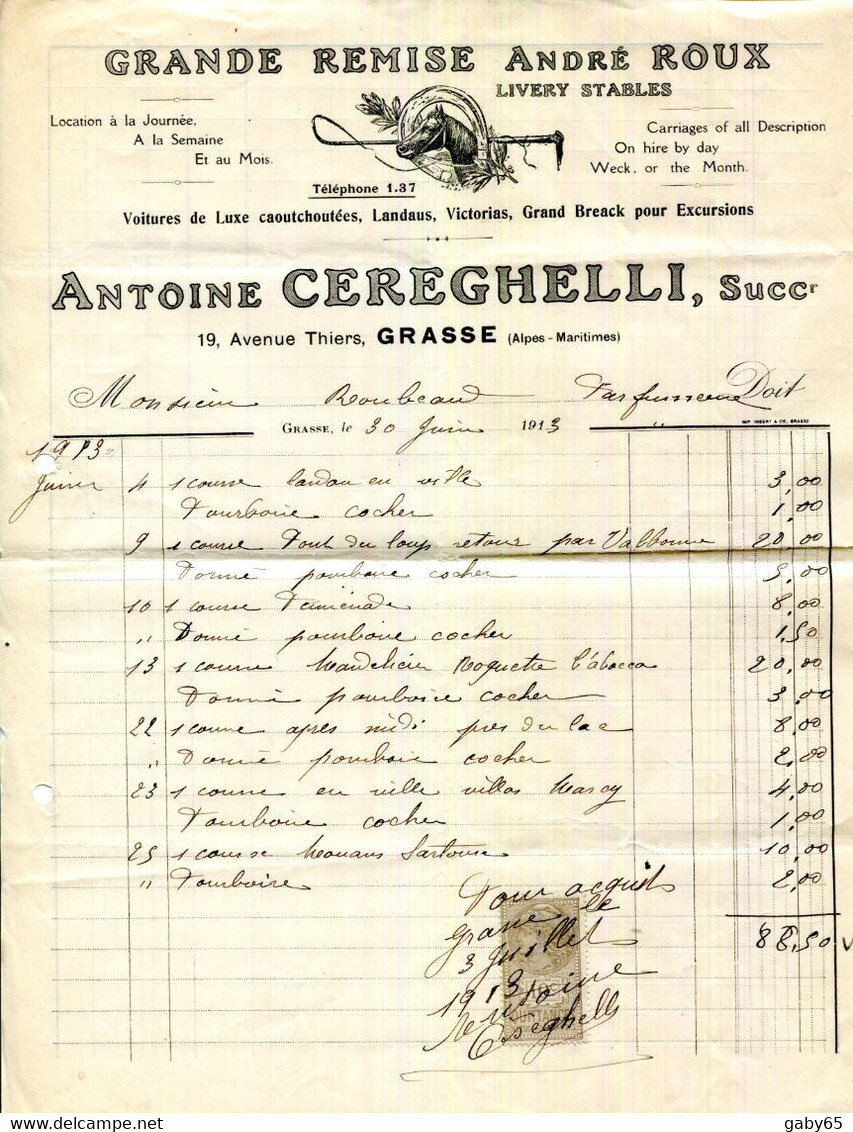 GRANDE REMISE ANDRÉ ROUX
LIVERY STABLES
Location à la Journée,
A la Semaine
Et au Mois.
Carriages of all Description
On hire by day
Weck, or the Month.
Téléphone 1.37
Voitures de Luxe caoutchoutées, Landaus, Victorias, Grand Breack pour Excursions
ANTOINE CEREGHELLI, Succr
19, Avenue Thiers, GRASSE (Alpes-Maritimes)
Monsieur Roubeaud Parfumeur Doit
GRASSE, le 30 Juin 1913
IMP. IMBERT & CIE, GRASSE
1913
Juin 4 1 course landau en ville 3,00
Pourboire cocher 1,00
9 1 course Pont du loup retour par Valbonne 20,00
Donné pourboire cocher 5,00
10 1 course 8,00
" Donné pourboire cocher 1,50
13 1 course Mandelieu Roquette l'abocca 20,00
Donné pourboire cocher 3,00
22 1 course apres midi pres du lac 8,00
" Donné pourboire cocher 2,00
23 1 course en ville villas 4,00
Pourboire cocher 1,00
25 1 course Mouans Sartoux 10,00
" Pourboire 2,00
88,50
Pour acquit
Grasse le
3 Juillet
1913
Antoine
Cereghelli
gaby65